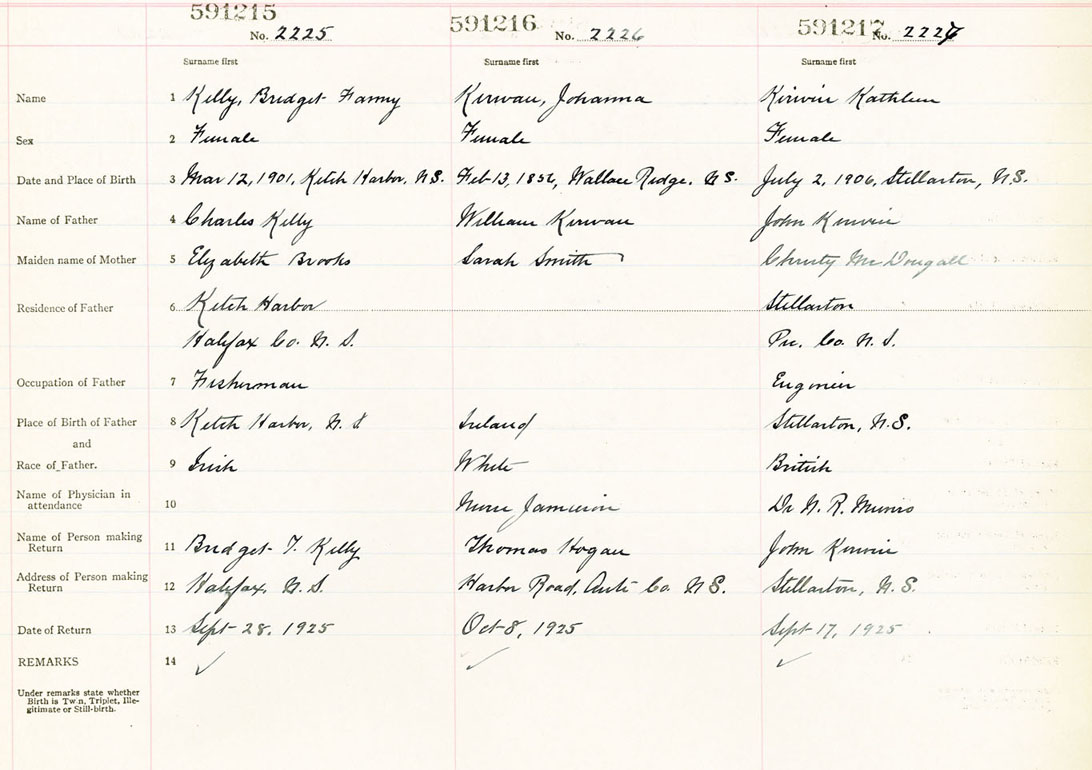 591215 591216 591217
No. 2225 No. 2226 No. 2227
Surname first Surname first Surname first
Name 1 Kelly, Bridget Fanny Kirwan, Johanna Kirwin Kathleen
Sex 2 Female Female Female
Date and Place of Birth 3 Mar 12, 1901, Ketch Harbor, N.S. Feb 13, 1856, Wallace Ridge, N.S. July 2, 1906, Stellarton, N.S.
Name of Father 4 Charles Kelly William Kirwan John Kirwin
Maiden name of Mother 5 Elizabeth Brooks Sarah Smith Christy McDougall
Residence of Father 6 Ketch Harbor Stellarton
Halifax Co. N. S. Pic. Co. N. S.
Occupation of Father 7 Fisherman Engineer
Place of Birth of Father 8 Ketch Harbor, N. S Ireland Stellarton, N.S.
and
Race of Father. 9 Irish White British
Name of Physician in
attendance 10 Jamieson Dr H. R. Munro
Name of Person making
Return 11 Bridget F. Kelly Thomas Hogan John Kirwin
Address of Person making
Return 12 Halifax, N.S. Harbor Road, Anti Co. N.S. Stellarton, N.S.
Date of Return 13 Sept 28, 1925 Oct 8, 1925 Sept 17, 1925
REMARKS 14
Under remarks state whether
Birth is Twin, Triplet, Ille-
gitimate or Still-birth.